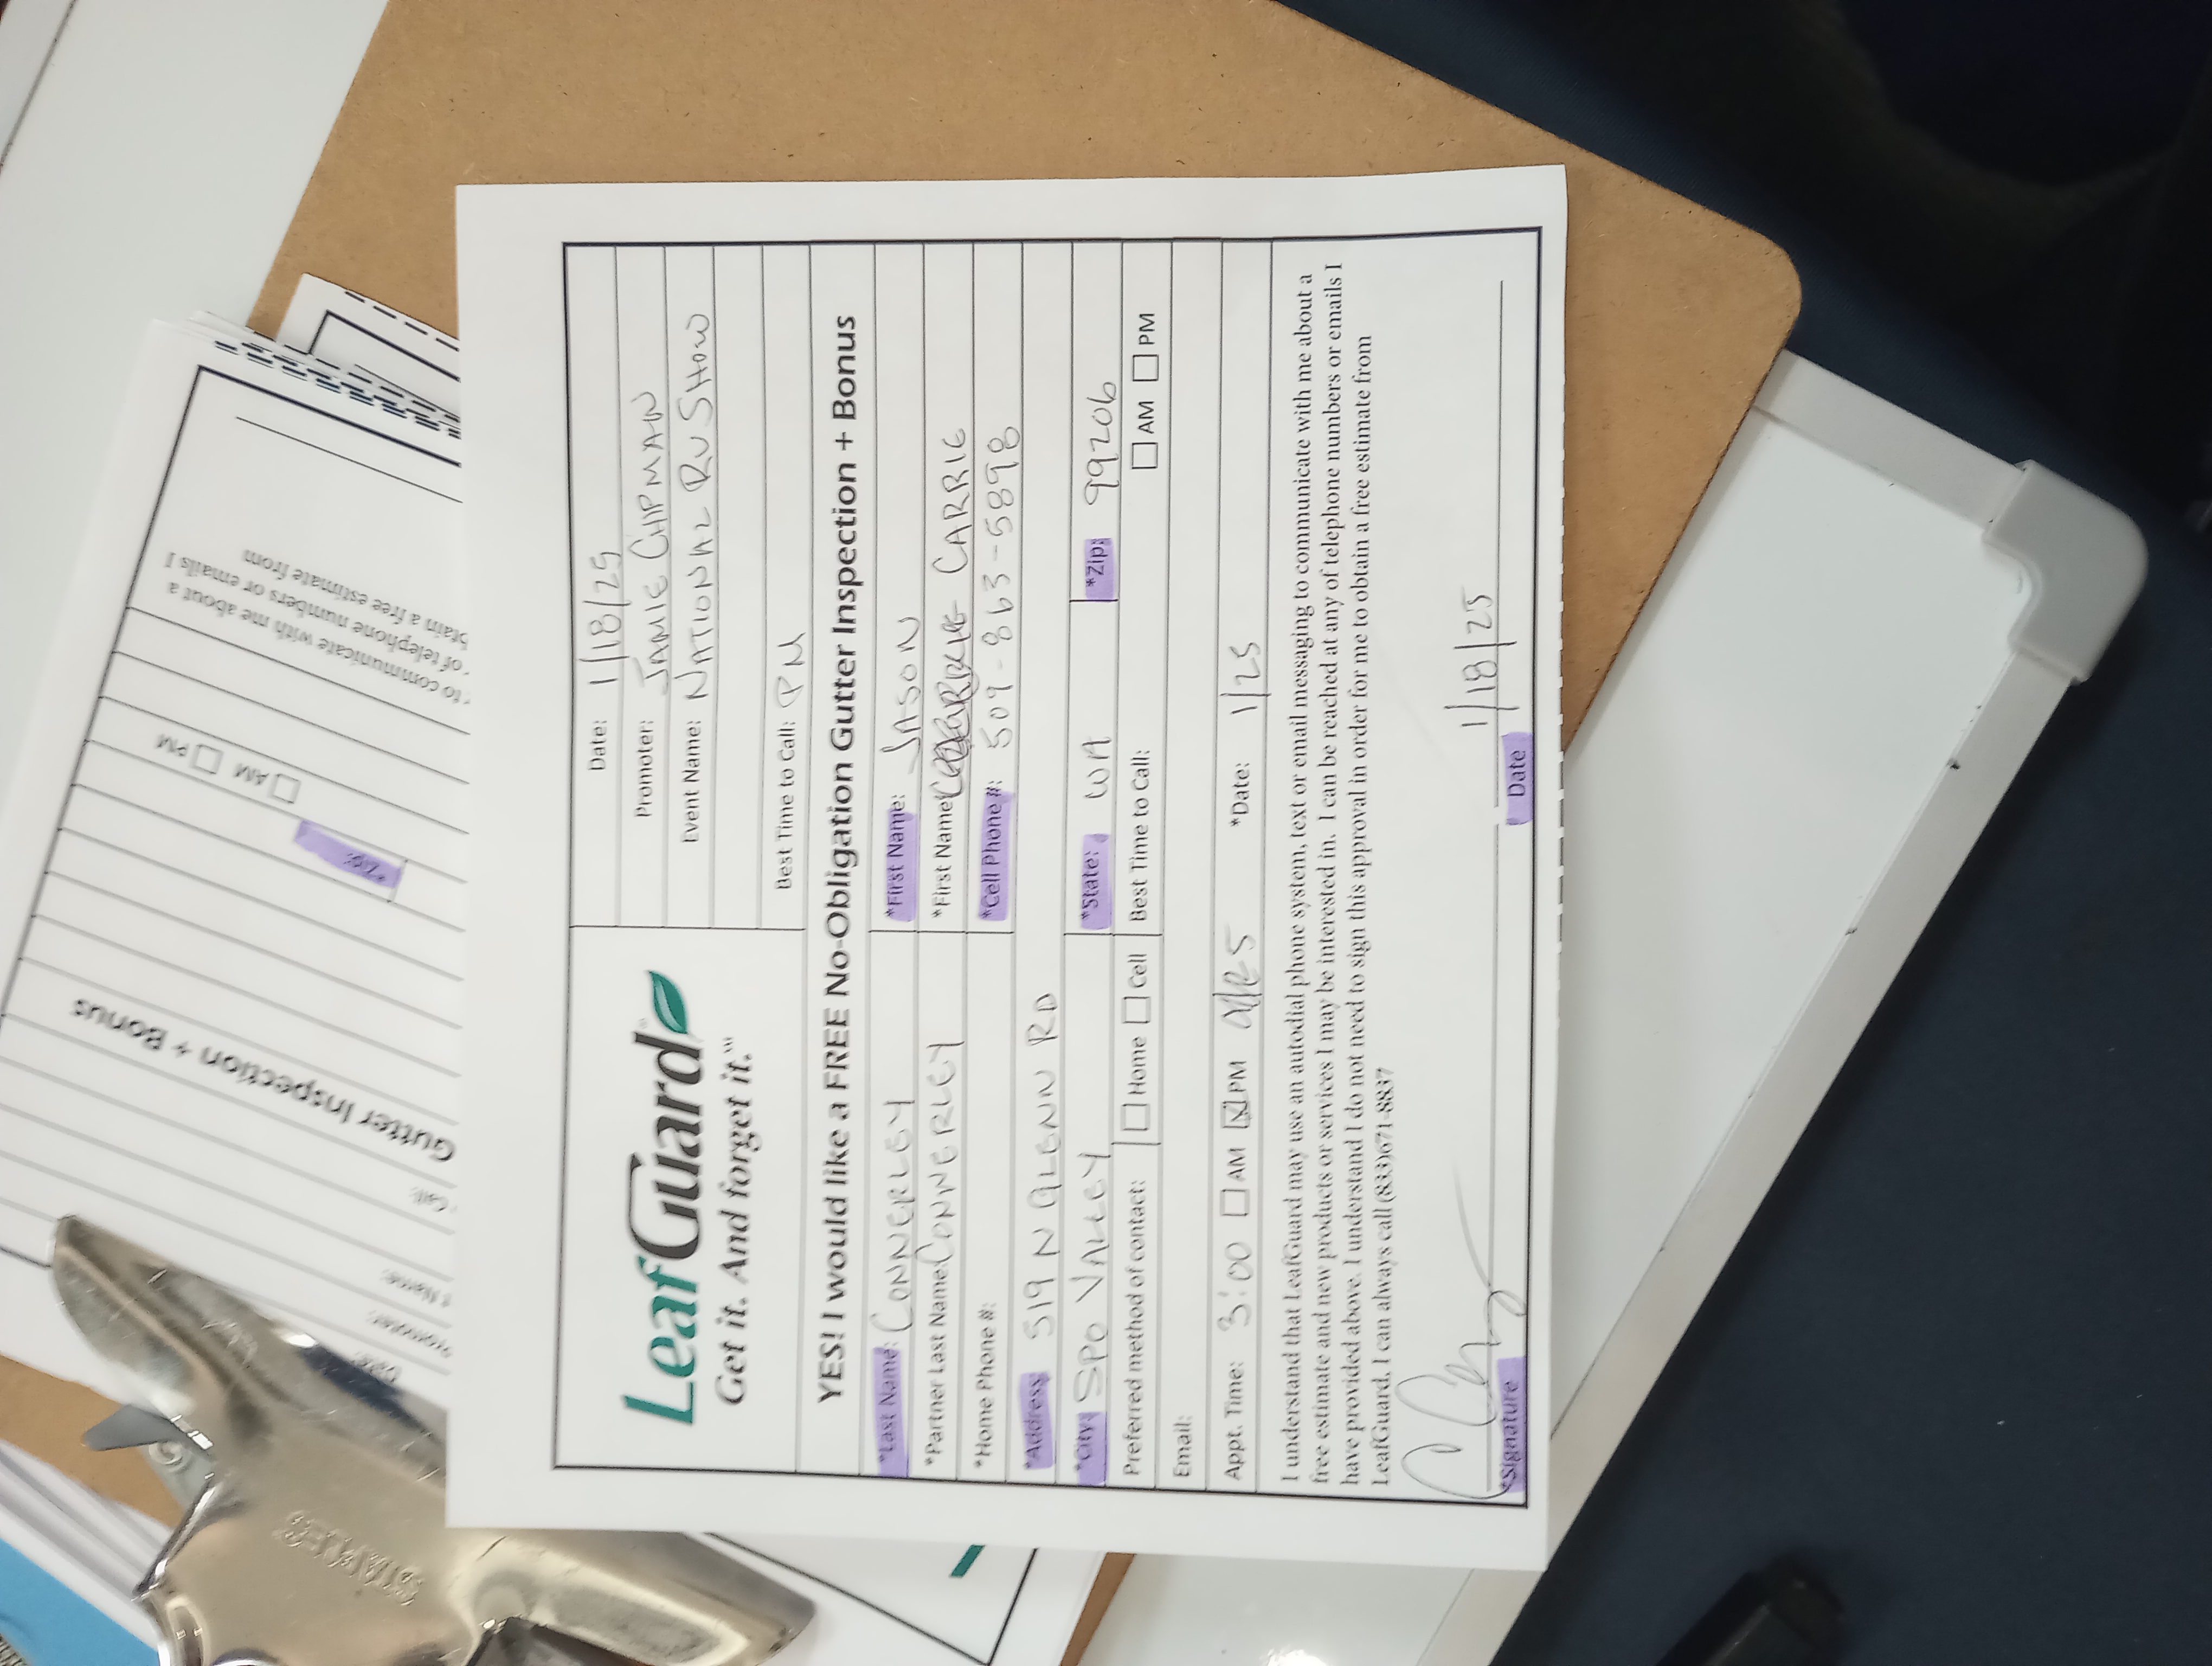 STAPLES
Date:
Promoter:
t Name:
Call:
Gutter Inspection + Bonus
*Zip:
AM PM
to communicate with me about a
of telephone numbers or emails I
btain a free estimate from
LeafGuard
Get it. And forget it.™
Date: 1/18/25
Promoter: JAMIE CHIPMAN
Event Name: NATIONAL RV SHOW
Best Time to Call: PM
YES! I would like a FREE No-Obligation Gutter Inspection + Bonus
*Last Name: CONNERLEY *First Name: JASON
*Partner Last Name: CONNERLEY *First Name: CARRIE
*Home Phone #: *Cell Phone #: 509-863-5898
*Address: 519 N GLENN RD
*City: SPO VALLEY *State: WA *Zip: 99206
Preferred method of contact: Home Cell Best Time to Call: AM PM
Email:
Appt. Time: 3:00 AM PM *Date: 1/25
I understand that LeafGuard may use an autodial phone system, text or email messaging to communicate with me about a
free estimate and new products or services I may be interested in. I can be reached at any of telephone numbers or emails I
have provided above. I understand I do not need to sign this approval in order for me to obtain a free estimate from
LeafGuard, I can always call (833)671-8837
1/18/25
*Signature Date